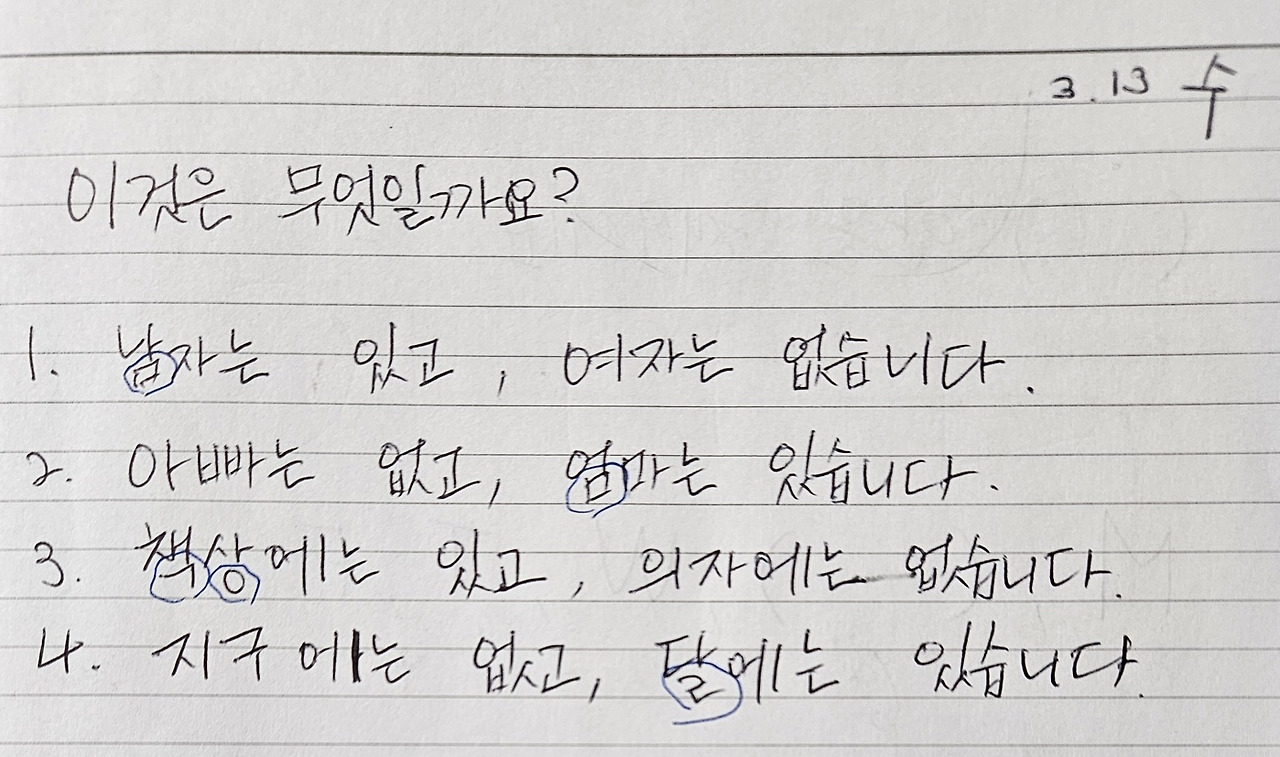 3.13 수
이것은 무엇일까요?
1. 남자는 있고, 여자는 없습니다.
2. 아빠는 없고, 엄마는 있습니다.
3. 책상에는 있고, 의자에는 없습니다.
4. 지구에는 없고, 달에는 있습니다.